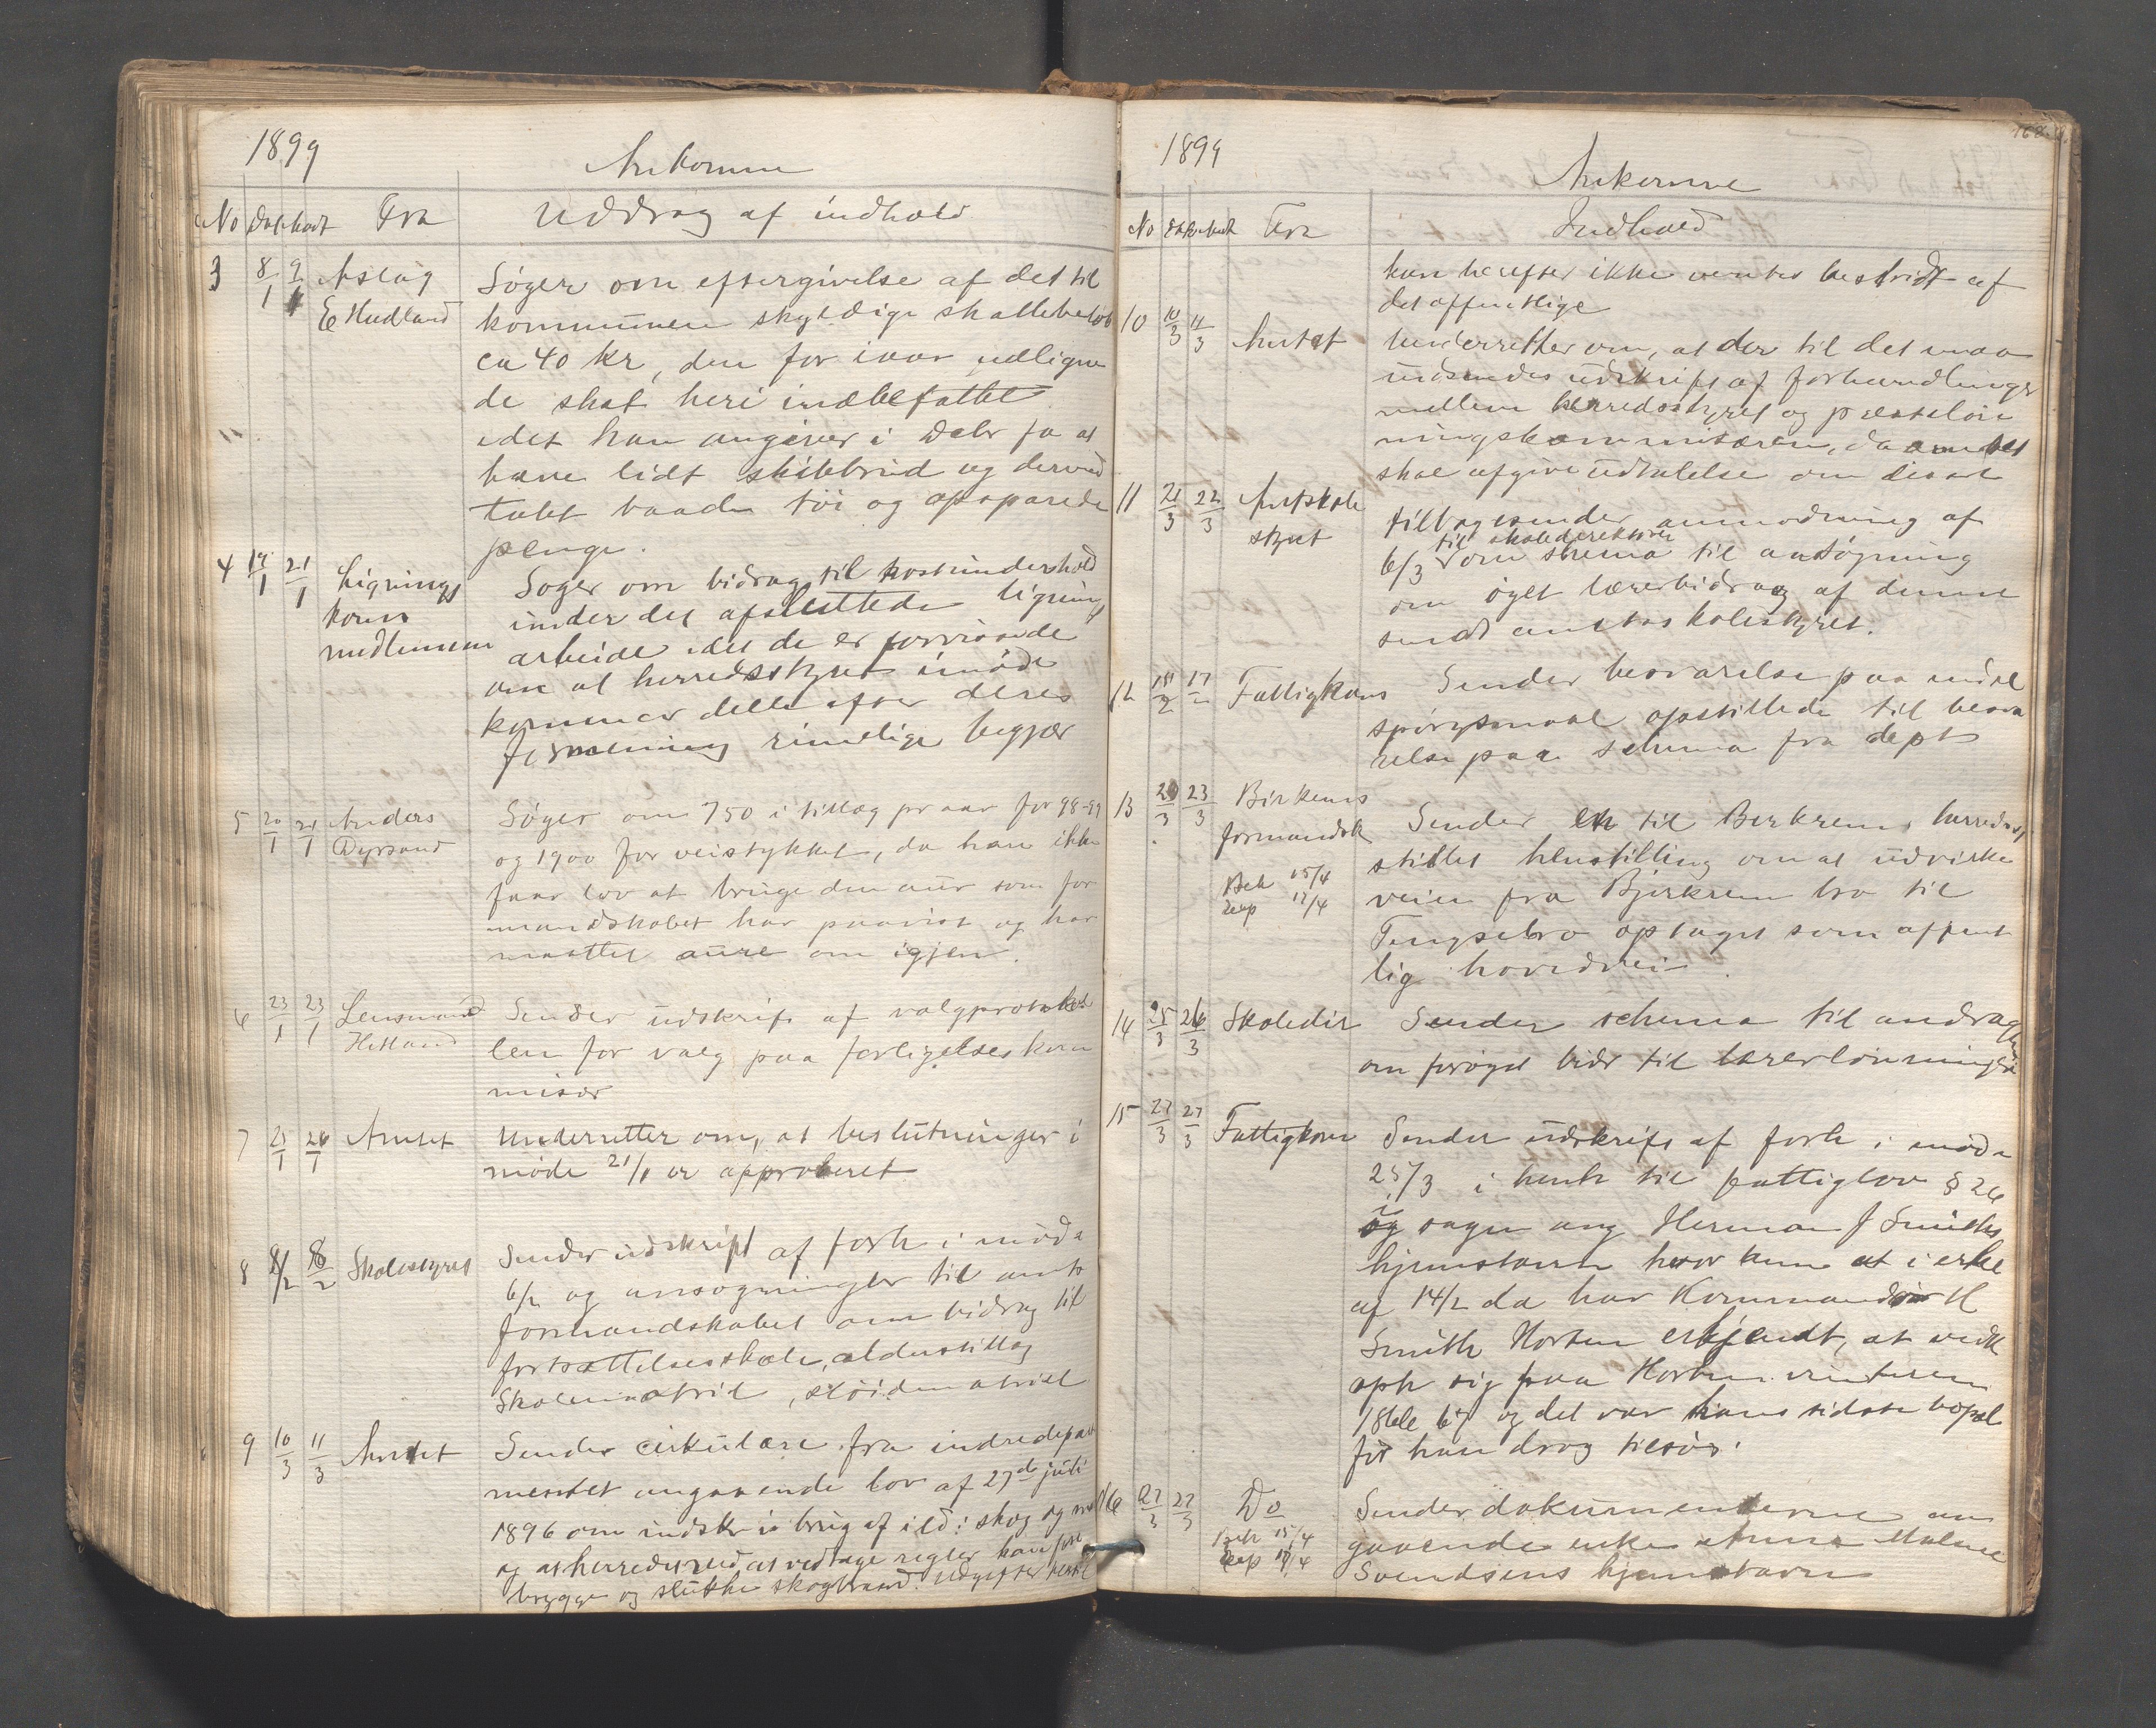 1899
Ankomne
No Dat Modt Fra Uddrag af indhold
3 8/1 9/1 Aslag
E Hudland
Søger om eftergivelse af det til
kommunen skyldige skattebeløb
ca 40 kr, den for ivaar udligne
de skat heri indbefattet
idet han angiver i Debr fa at
have lidt skibbrud og derved
tabt baade tøi og opsparede
penge.
4 19/1 21/1 Lignings
kom
medlemmer
Søger om bidrag til kostunderhold
under det afsluttede lignings
arbeide idet de er forvissede
om at herredsstyret imøde
kommer dette efter deres
formening rimelige begjær
5 20/1 21/1 Anders
Dyrsand
Søger om 750 i tillæg pr aar for 98-99
og 1900 for veistykket, da han ikke
faar lov at bruge den aur som for
mandskabet har paavist og har
maattet aure om igjen.
6 23/1 23/1 Lensmand
Hetland
Sender udskrift af valgprotokol
len for valg paa forligelseskom
misær
7 25/1 26/1 Amtet
Underretter om, at beslutninger i
møde 21/1 er approberet
8 8/2 8/2 Skolestyret
Sender udskrift af forh i møde
6/2 og ansøgninger til amts
formandskabet om bidrag til
fortsættelsesskole, alderstillæg
Skolemateriel, sløidmateriel
9 10/3 11/3 Amtet
Sender cirkulære fra indredepart
mentet angaaende lov af 27de juli
1896 om indskr i brug af ild i skog og mark
og at herredsred at vedtage regler kan fore
bygge og slukke skogbrand. Udgifter hertil
1899
168.
Ankomne
No Dat Modt Fra Indhold
kan herefter ikke ventes bestridt af
det offentlige
10 10/3 11/3 Amtet
Underretter om, at der til det maa
indsendes udskrift af forhandlinger
mellem herredsstyret og præsteløn
ningskommisæren, da amtet
skal afgive udtalelse om disse
11 21/3 22/3 Amtskole
styret
tilbagesender anmodning af
til skoledirektøren
6/3 om skema til ansøgning
om øget lærerbidrag af denne
sendt amtsskolestyret.
12 17/ Fattigkom
Sender besvarelse paa endel
spørgsmaal opstillede til besva
relse paa schema fra dept
13 20/3 23/3 Birkrems
formandsk
Beh 15/4
Exp 17/4
Sender en til Birkrem herreds
stillet henstilling om at udvirke
veien fra Bjerkrem bro til
Tengsebro optaget som offent
lig hovedvei.
14 25/3 26/3 Skoledir
Sender schema til andragende
om forøget bidr til lærerlønninger
15 27/3 27/3 Fattigkom
Sender udskrift af forh i møde
25/3 i henh til fattiglov § 26
i sagen ang Herman J Smiths
hjemstavn
af 14/2 da har Kommandør H
Smith Horten erkjendt, at vedk
oph sig paa Horten vinteren
1866 67 og det var hans sidste bopæl
før han drog tilsøs.
16 27/3 27/3 Do
Beh 15/4
Exp 17/4
Sender dokumenterne an
gaaende enke Anna Malene
Svendsens hjemstavn